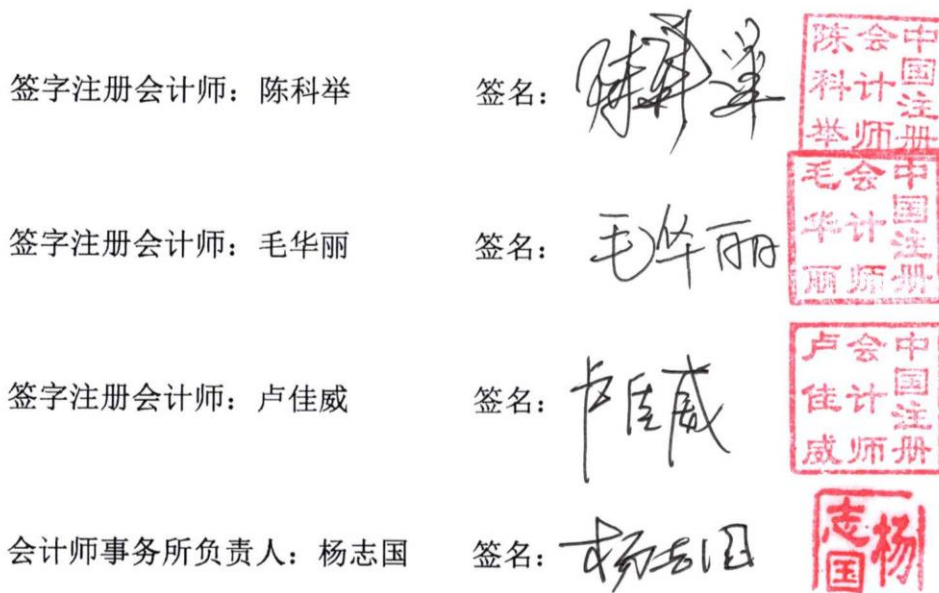 签字注册会计师：陈科举 签名：陈科举
中国注册会计师陈科举
签字注册会计师：毛华丽 签名：毛华丽
中国注册会计师毛华丽
签字注册会计师：卢佳威 签名：卢佳威
中国注册会计师卢佳威
会计师事务所负责人：杨志国 签名：杨志国
杨志国